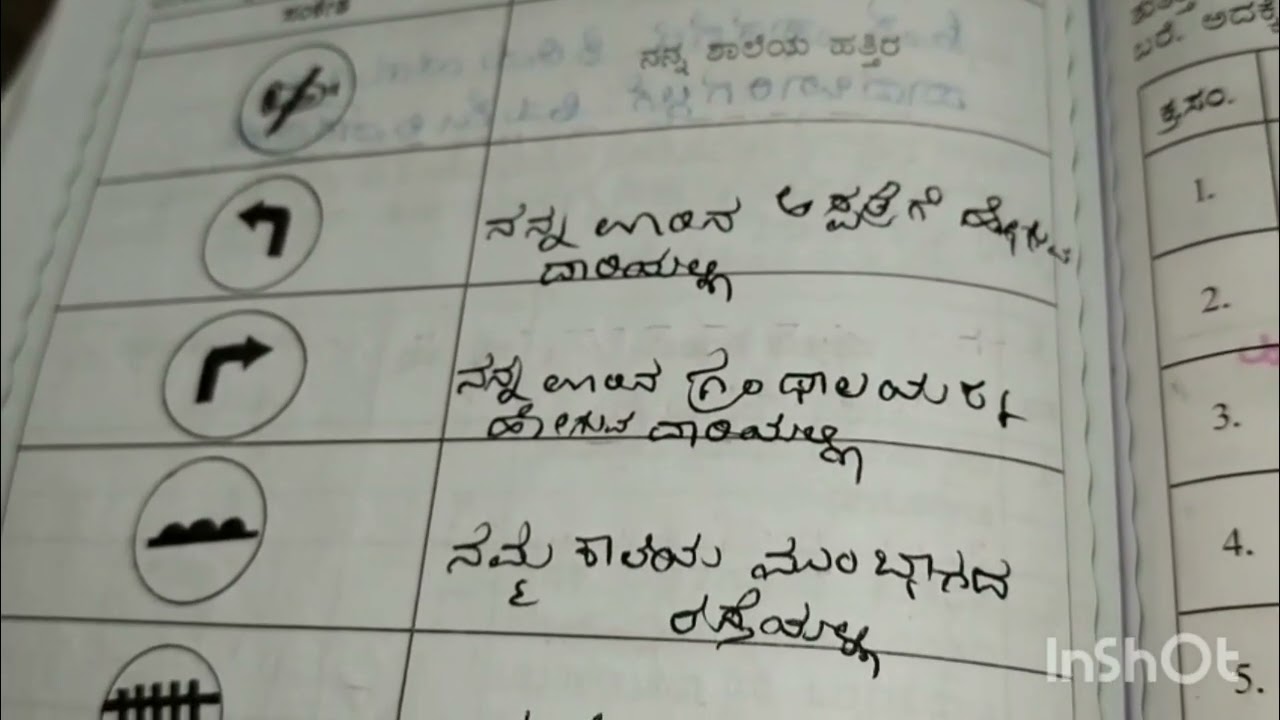 ಸಂಕೇತ
ನನ್ನ ಶಾಲೆಯ ಹತ್ತಿರ
ನನ್ನ ಊರಿನ ಆಸ್ಪತ್ರೆಗೆ ಹೋಗುವ
ದಾರಿಯಲ್ಲಿ
ನನ್ನ ಊರಿನ ಗ್ರಂಥಾಲಯಕ್ಕೆ
ಹೋಗುವ ದಾರಿಯಲ್ಲಿ
ನಮ್ಮ ಶಾಲೆಯ ಮುಂಭಾಗದ
ರಸ್ತೆಯಲ್ಲಿ
ಬರೆ. ಅದಕ್ಕೆ
ಕ್ರ.ಸಂ.
1.
2.
3.
4.
5.
InShOt